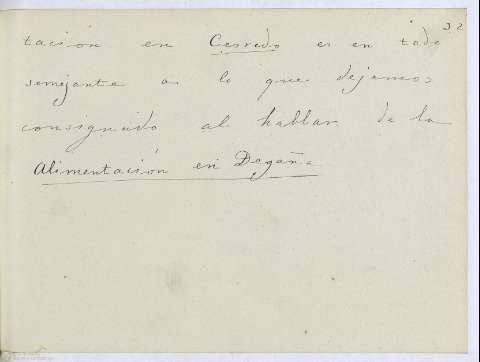 32
tación en Cerredo es en todo
semejante a lo que dejamos
consignado al hablar de la
Alimentación en Degaña